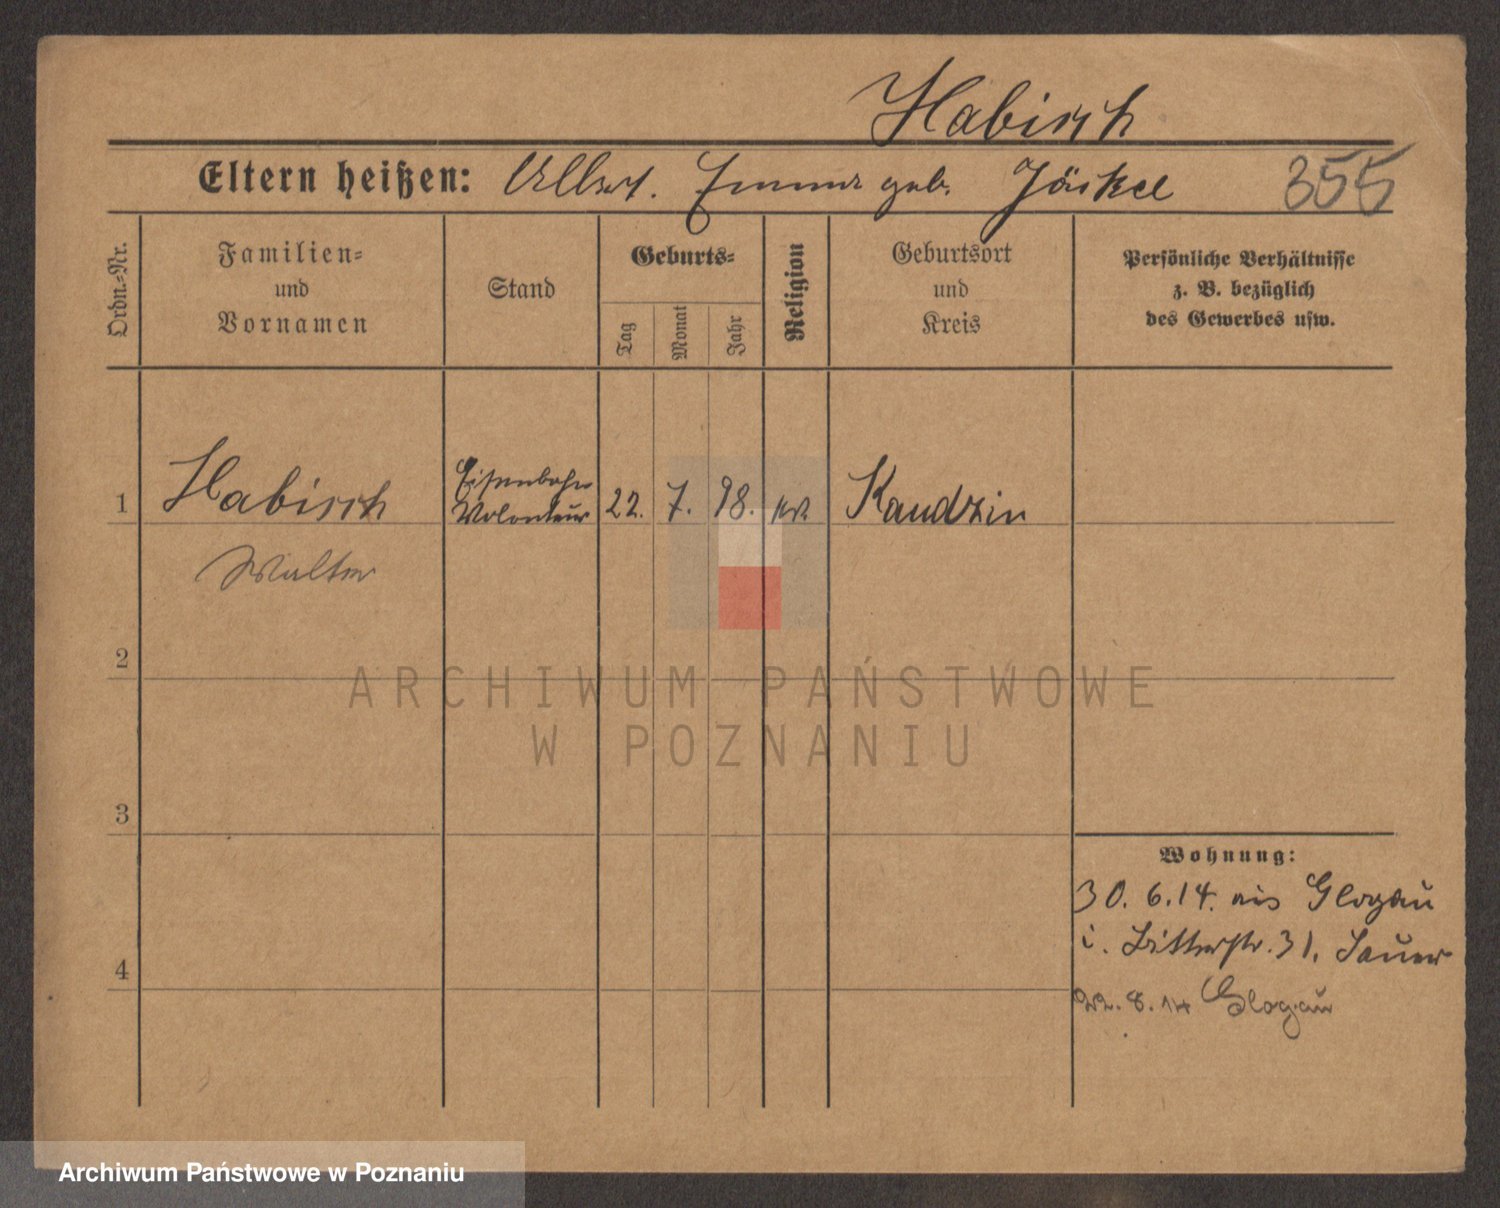 Habisch
Eltern heißen: Albert. Emma geb. Jäckel 355
Ordn.-Nr.
Familien-
und
Vornamen
Stand
Geburts-
Tag
Monat
Jahr
Religion
Geburtsort
und
Kreis
Persönliche Verhältnisse
z. B. bezüglich
des Gewerbes usw.
1 Habisch Eisenbahn
Volonteur 22. 7. 98. Kandzin
Walter
2
3
4
Wohnung:
30. 6.14. aus Glogau
i. Ritterstr. 31. Sauer
22. 8. 14 Glogau
ARCHIWUM PAŃSTWOWE
W POZNANIU
Archiwum Państwowe w Poznaniu